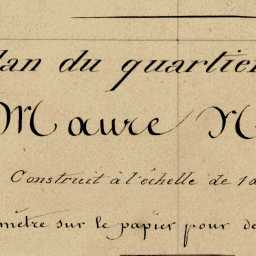 lan du quartier
Maure N
Construit à l'échelle de 1 a
mètre sur le papier pour de